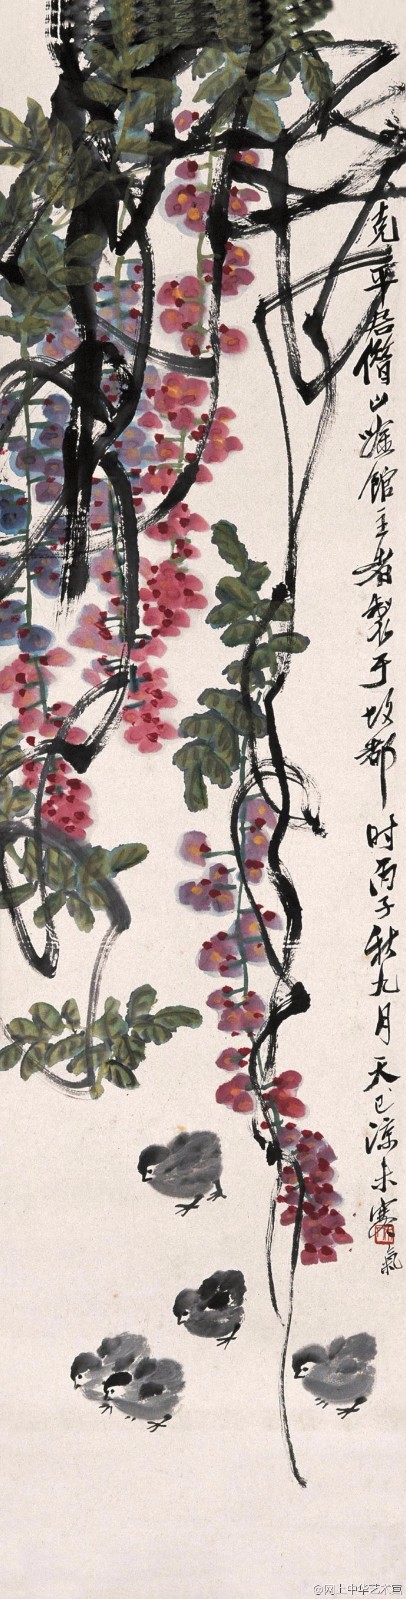 克平君借山唫館主者製于故都时丙子秋九月天已涼未寒氣
@网上中华艺术宫